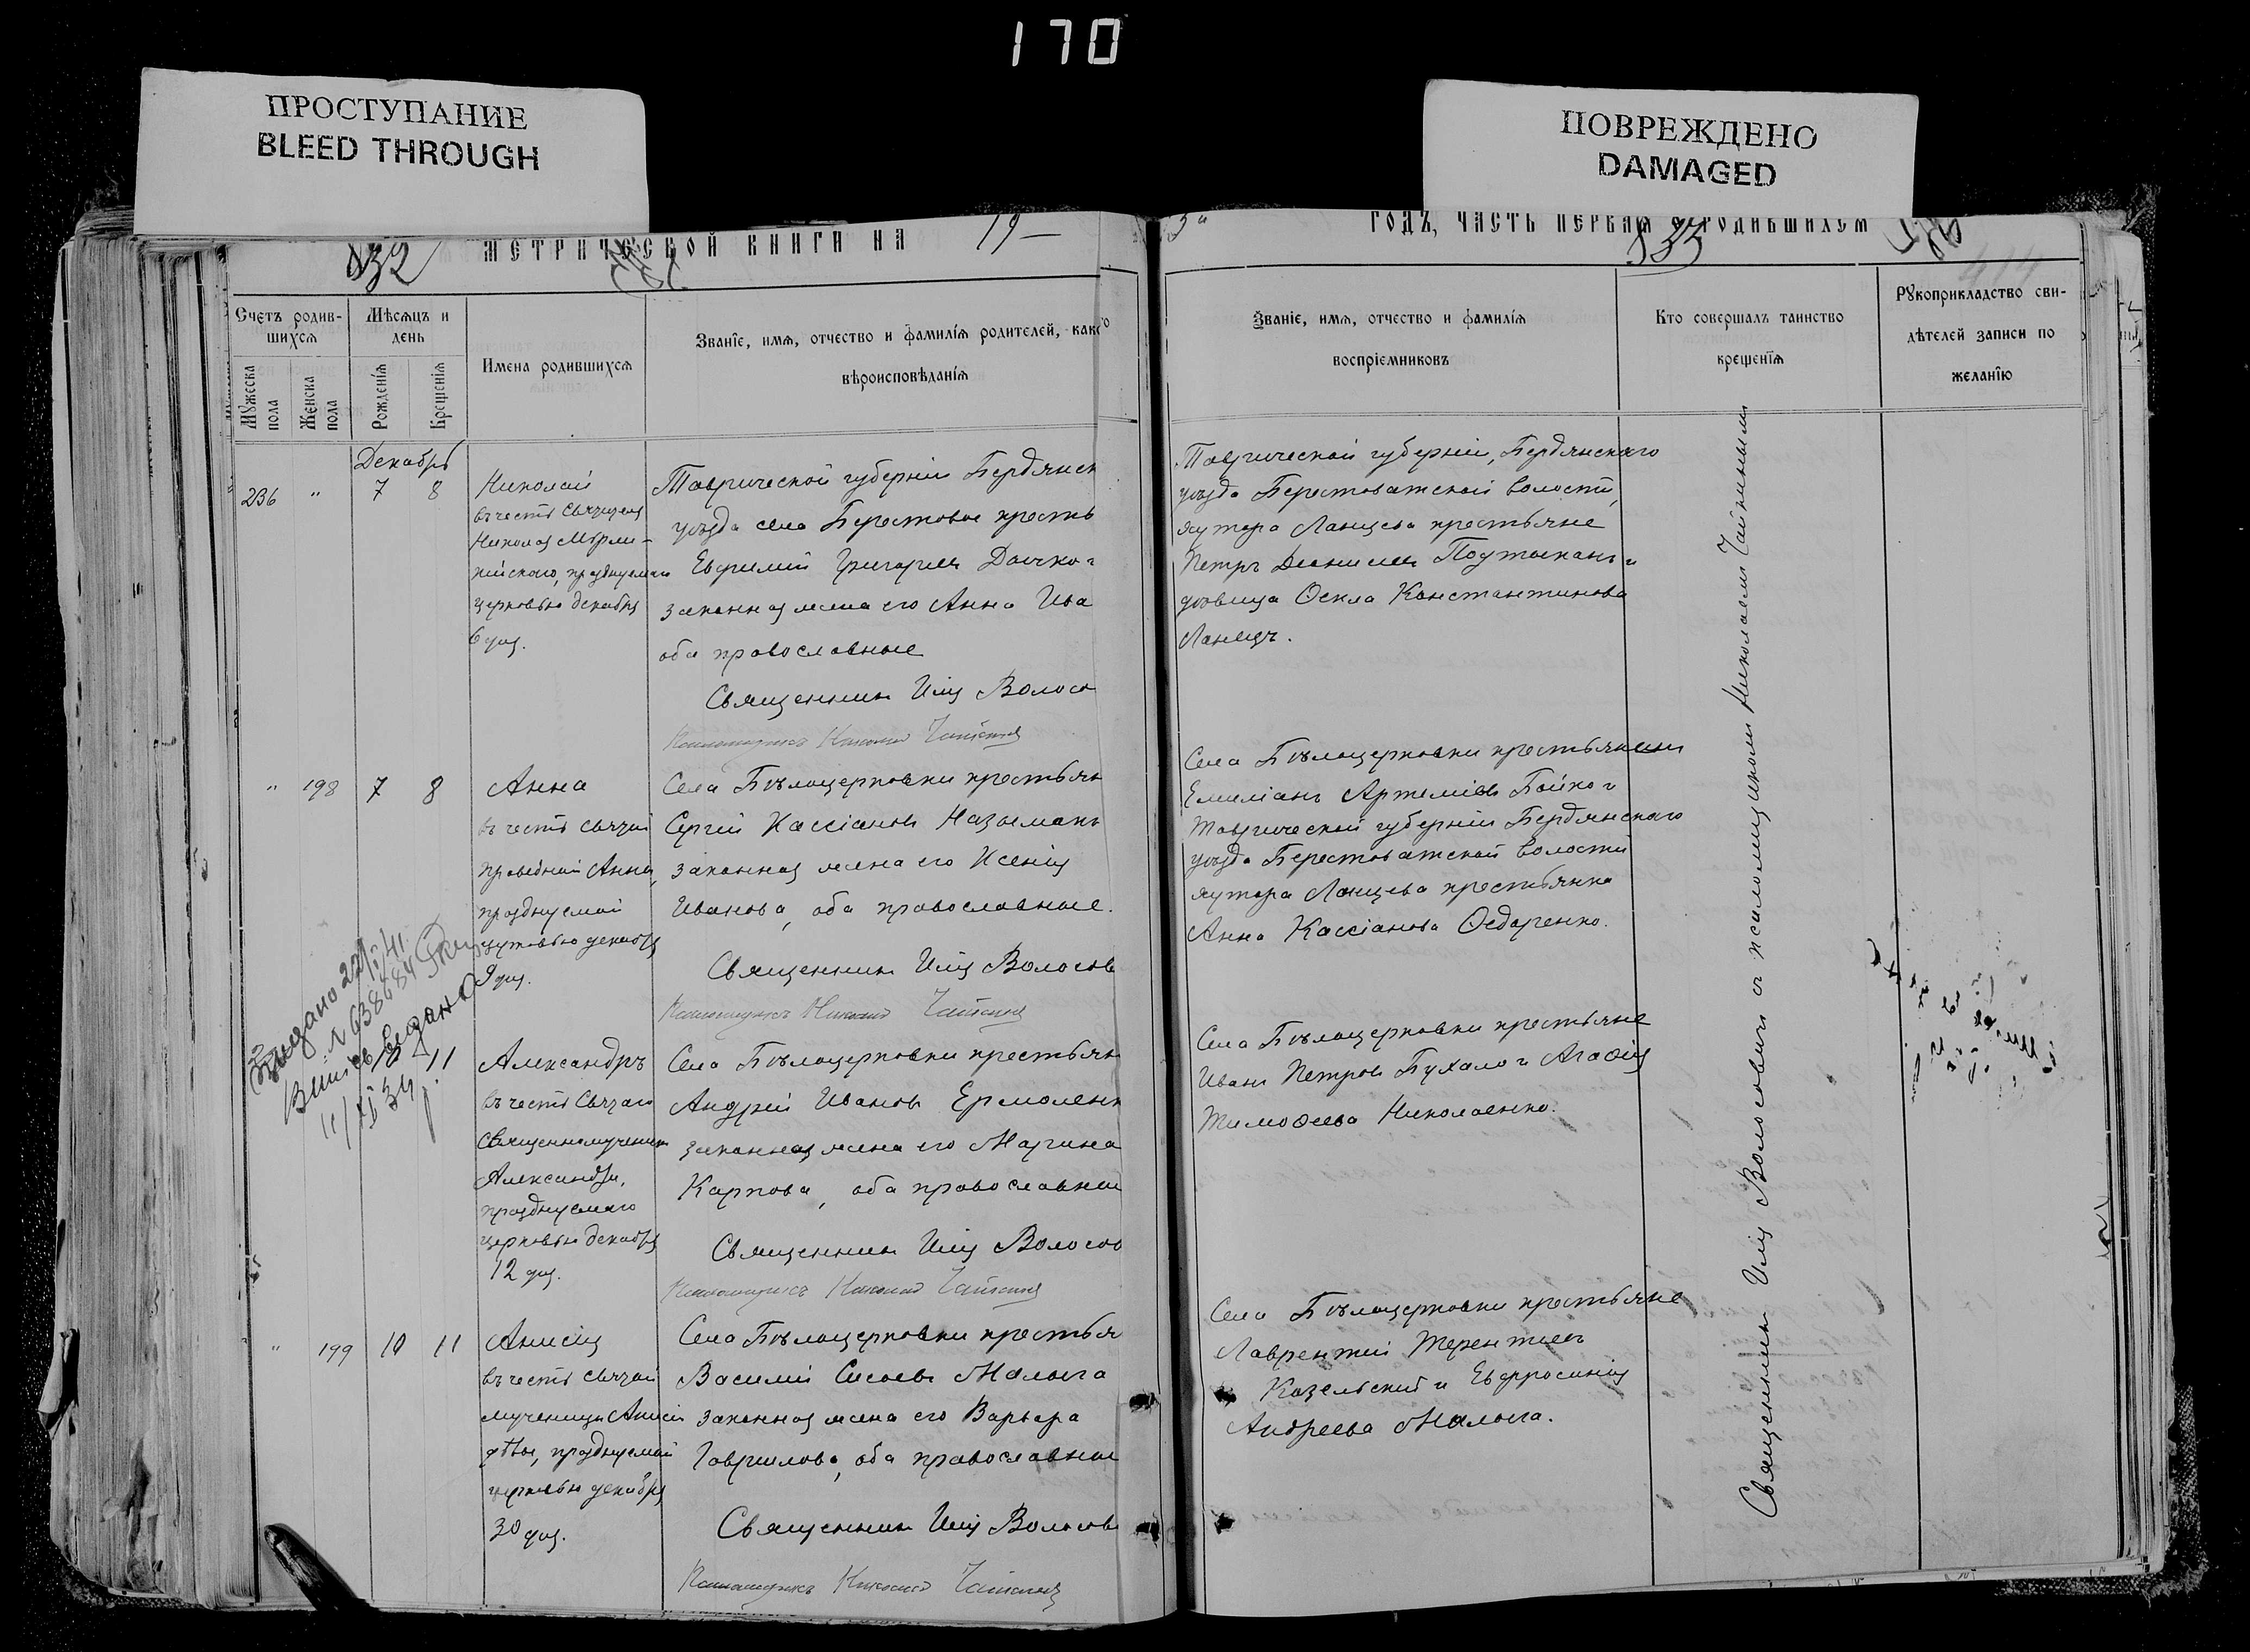 170
ПРОСТУПАНИЕ
BLEED THROUGH
ПОВРЕЖДЕНО
DAMAGED
832
МЕТРИЧЕСКОЙ КНИГИ НА 19—
Счетъ родив-
шихся
Мѣсяцъ и
день
Мужеска
пола
Женска
пола
Рожденія
Крещенія
Имена родившихся
Званіе, имя, отчество и фамилія родителей, како
вѣроисповѣданія
Декабрь
236 " 7 8
Николай
въ честь святителя
Николая Мѵрли-
кійскаго, празднуемаго
церковью декабря
6 дня.
Таврической губерніи Бердянск
уѣзда села Берестовое кресть
Евфимій Григорьев
законная жена его Анна Ива
оба православные
Священникъ Илія Волосов
Псаломщикъ Николай Чайкинъ
" 198 7 8
Анна
въ честь святой
праведной Анны,
празднуемой
церковью декабря
9 дня.
Села Бѣлоцерковки крестьян
Сергій Кассіановъ Назьмакъ
законная жена его Ксенія
Иванова, оба православные.
Священникъ Илія Волосов
Псаломщикъ Николай Чайкинъ
Видано 22/
N 638684
Выпись выдана
11/XI 34
11
Александръ
въ честь святаго
священномученика
Александра,
празднуемаго
церковью декабря
12 дня.
Села Бѣлоцерковки крестьян
Андрей Ивановъ Ермоленк
законная жена его Марина
Карпова, оба православные
Священникъ Илія Волосов
Псаломщикъ Николай Чайкинъ
" 199 10 11
Анисія
въ честь святой
мученицы Анисіи
дѣвы, празднуемой
церковью декабря
30 дня.
Села Бѣлоцерковки крестья
Василій Сисоевъ Малыга
законная жена его Варвара
Гаврилова, оба православные
Священникъ Илія Волосов
Псаломщикъ Николай Чайкинъ
3й ГОДЪ, ЧАСТЬ ПЕРВАЯ О РОДИВШИХСЯ
833
414
Званіе, имя, отчество и фамилія
воспріемниковъ
Кто совершалъ таинство
крещенія
Рукоприкладство сви-
дѣтелей записи по
желанію
Таврической губерніи, Бердянскаго
уѣзда Берестоватской волости,
хутора Ланцева крестьяне
Петръ и
дѣвица Ѳекла Константинова
Ланецъ.
Села Бѣлоцерковки крестьянинъ
Емиліанъ Артеміевъ Бойко и
Таврической губерніи Бердянскаго
уѣзда Берестоватской волости
хутора Ланцева крестьянка
Анна Кассіанова Ѳедоренко.
Села Бѣлоцерковки крестьяне
Иванъ Петровъ Бухало и Агаѳія
Тимоѳеева Николаенко.
Села Бѣлоцерковки крестьяне
Лаврентій Терентіевъ
Козельскій и Евфросинія
Андреева Малыга.
Священникъ Илія Волосовичъ съ псаломщикомъ Николаемъ Чайкинымъ